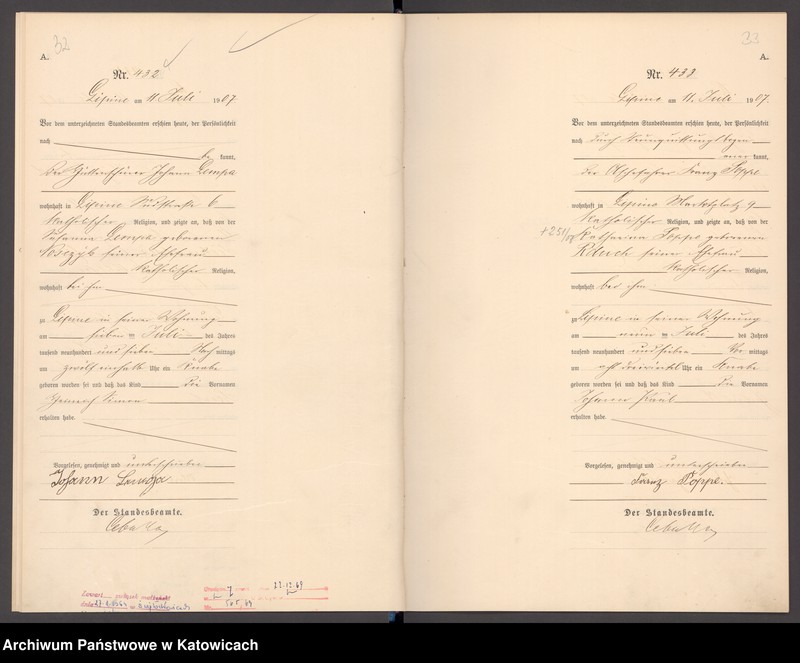 32
A.
Nr. 432
Lipine am 11. Juli 1907.
Vor dem unterzeichneten Standesbeamten erschien heute, der Persönlichkeit
nach
be kannt,
der Johann Lempa
wohnhaft in Lipine Südstraße 6
katholischer Religion, und zeigte an, daß von der
Susanna Lempa geborenen
seiner Ehefrau
katholischer Religion,
wohnhaft bei ihm
zu Lipine in seiner Wohnung
am sieben ten Juli des Jahres
tausend neunhundert und sieben Nach mittags
am zwölf einhalb Uhr ein Knabe
geboren worden sei und daß das Kind die Vornamen
Heinrich Simon
erhalten habe.
Vorgelesen, genehmigt und unterschrieben
Johann Lempa
Der Standesbeamte.
27.12.49
33
A.
Nr. 433
Lipine am 11. Juli 1907.
Vor dem unterzeichneten Standesbeamten erschien heute, der Persönlichkeit
nach durch
kannt,
der Franz Poppe
wohnhaft in Lipine Marktplatz 9
katholischer Religion, und zeigte an, daß von der
Katharina Poppe geborenen
seiner Ehefrau
katholischer Religion,
wohnhaft bei ihm
zu Lipine in seiner Wohnung
am neun ten Juli des Jahres
tausend neunhundert und sieben Vor mittags
um acht dreiviertel Uhr ein Knabe
geboren worden sei und daß das Kind die Vornamen
Johann Paul
erhalten habe.
Vorgelesen, genehmigt und unterschrieben
Franz Poppe.
Der Standesbeamte.
Archiwum Państwowe w Katowicach